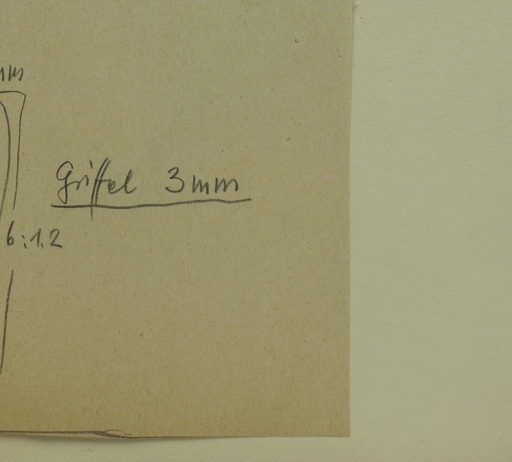 mm
Griffel 3mm
6:1.2